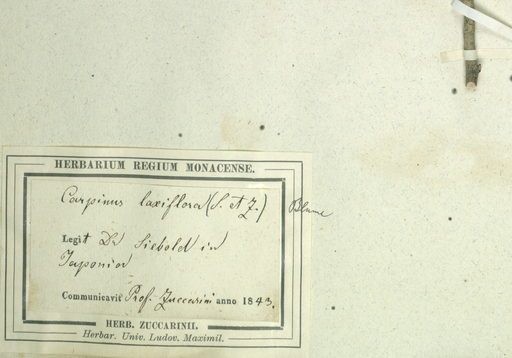 HERBARIUM REGIUM MONACENSE.
Carpinus laxiflora (S. et Z.) Blume
Legit Dr Siebold in
Japonia
Communicavit Prof. Zuccarini anno 1843.
HERB. ZUCCARINII.
Herbar. Univ. Ludov. Maximil.